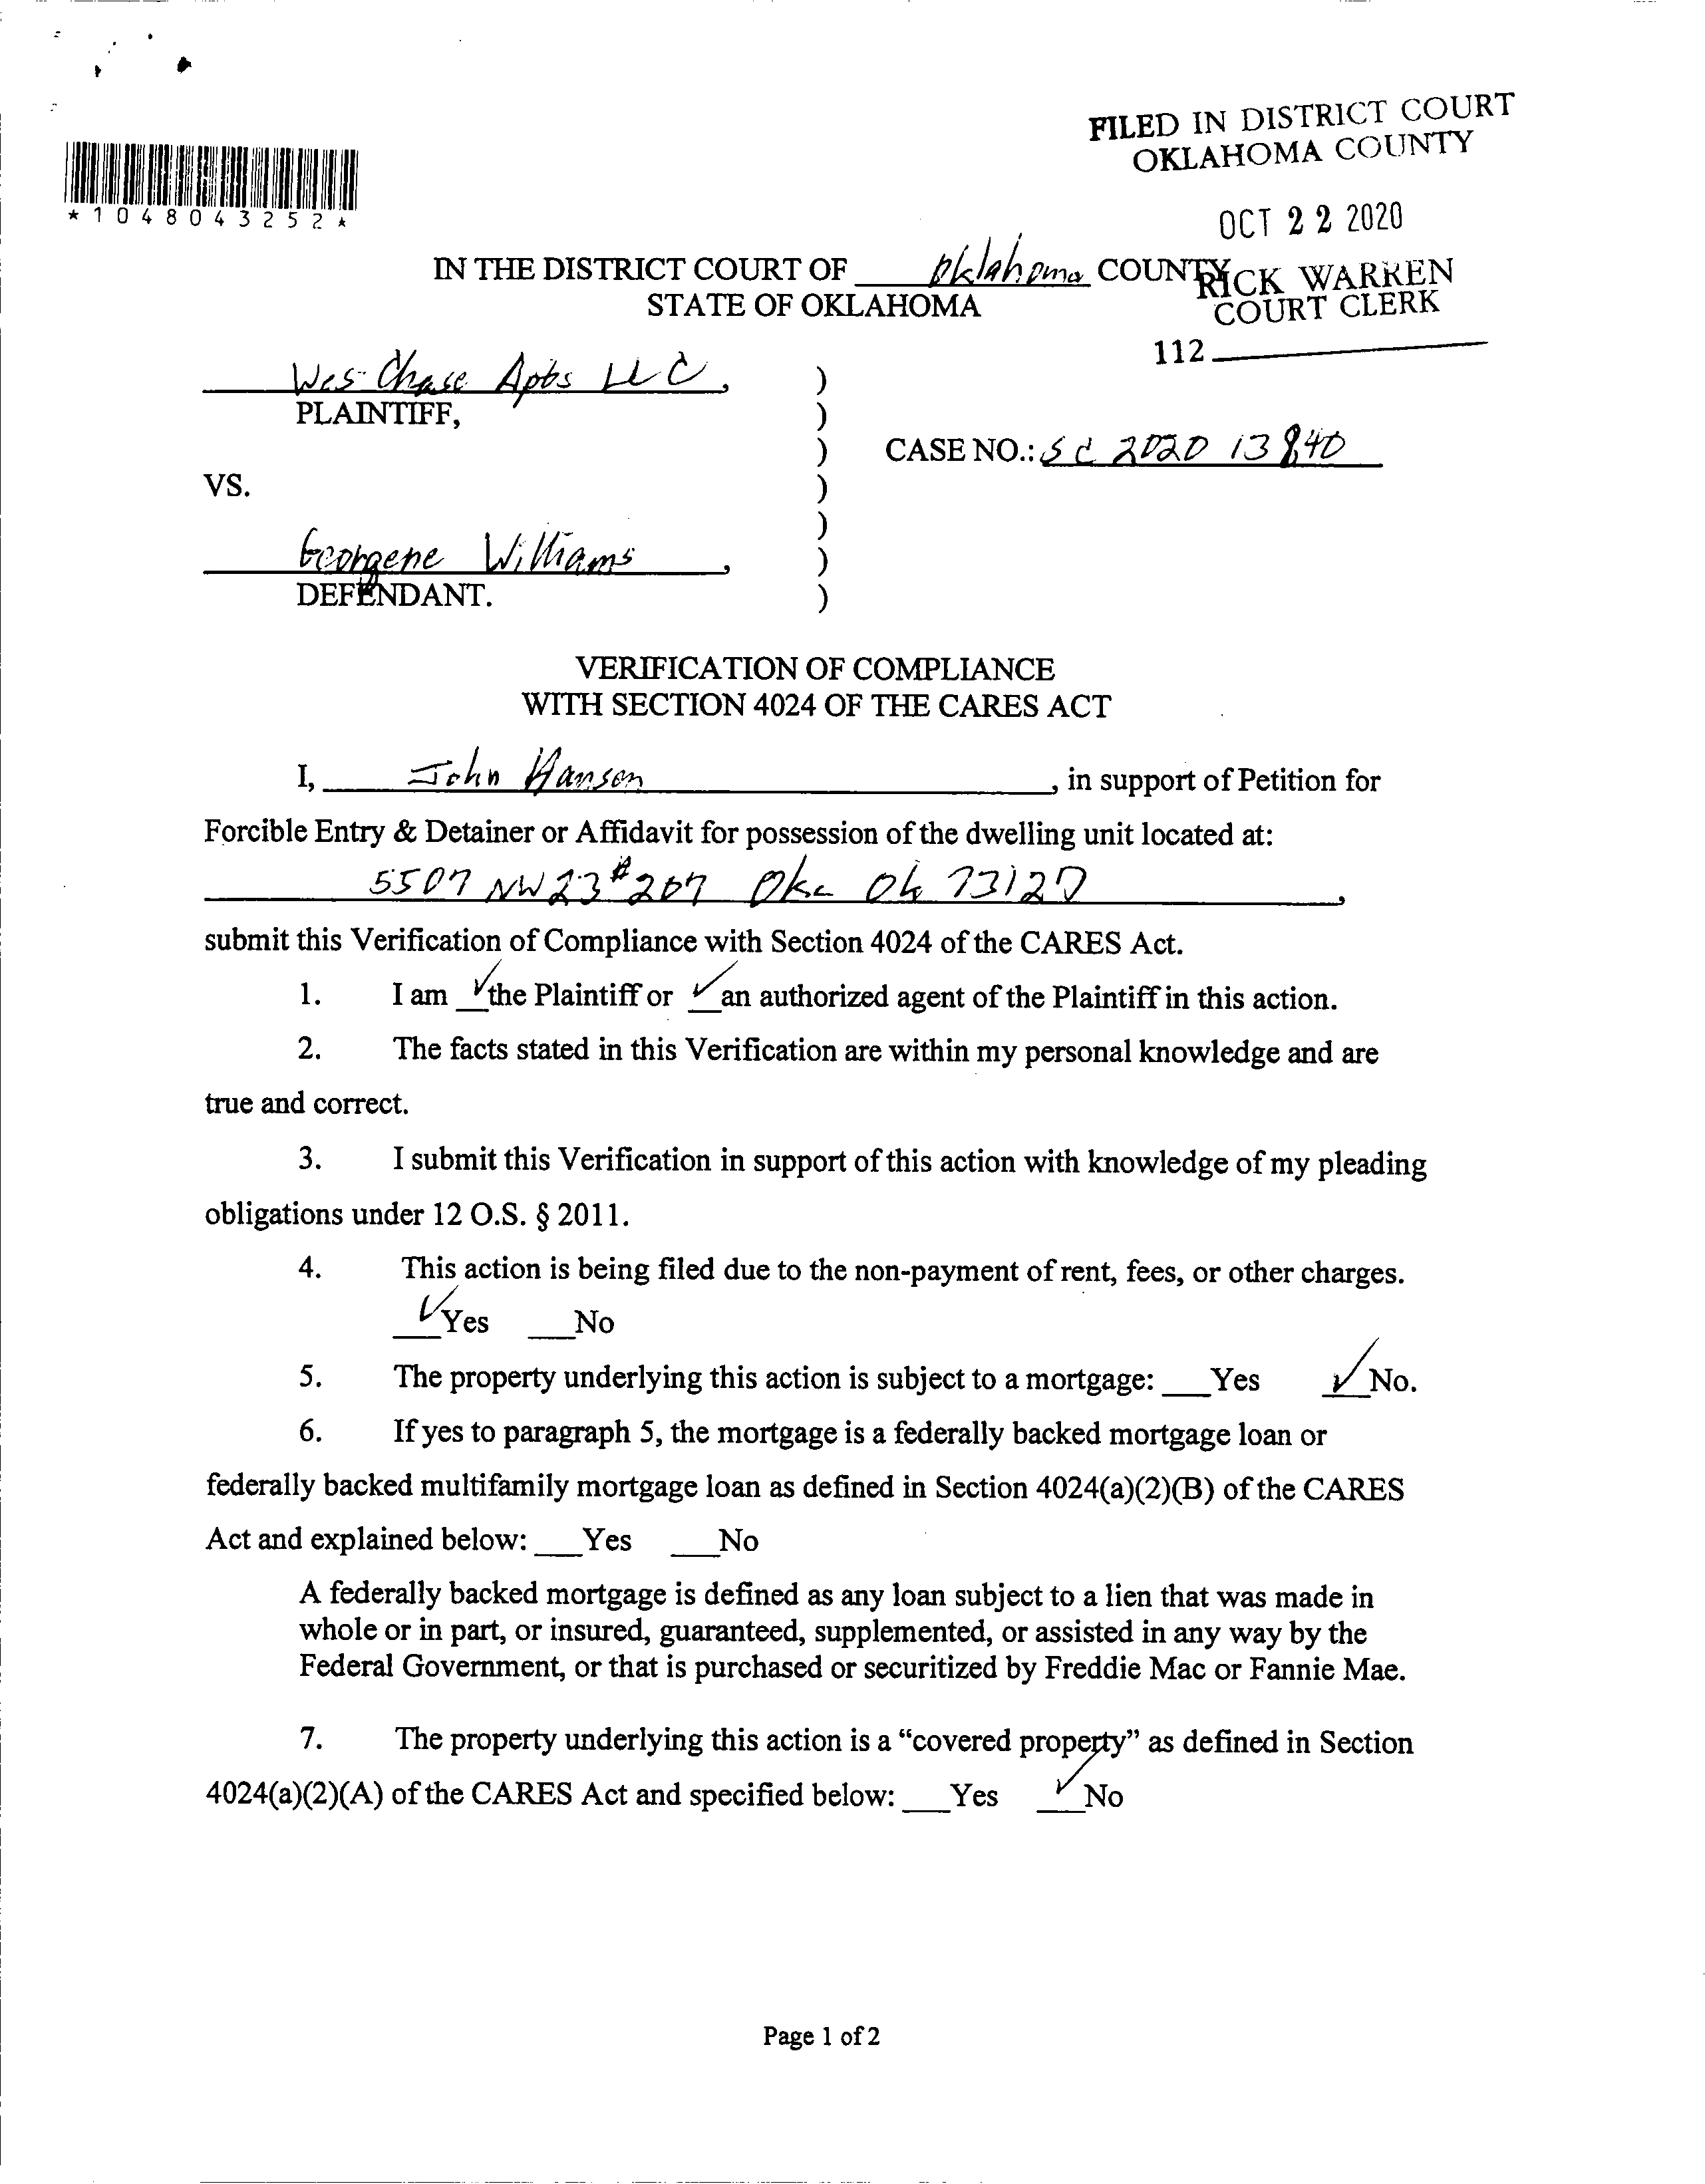 FILED IN DISTRICT COURT
OKLAHOMA COUNTY
*1048043252*
OCT 22 2020
IN THE DISTRICT COURT OF Oklahoma COUNTY
RICK WARREN
STATE OF OKLAHOMA
COURT CLERK
112
Wes Chase Apts LLC, )
PLAINTIFF, )
) CASE NO.: SC 2020 13840
VS. )
)
Georgene Williams, )
DEFENDANT. )
VERIFICATION OF COMPLIANCE
WITH SECTION 4024 OF THE CARES ACT
I, John Hansen, in support of Petition for
Forcible Entry & Detainer or Affidavit for possession of the dwelling unit located at:
5507 NW 23 # 207 Okc Ok 73127,
submit this Verification of Compliance with Section 4024 of the CARES Act.
1. I am ✓ the Plaintiff or ✓ an authorized agent of the Plaintiff in this action.
2. The facts stated in this Verification are within my personal knowledge and are
true and correct.
3. I submit this Verification in support of this action with knowledge of my pleading
obligations under 12 O.S. § 2011.
4. This action is being filed due to the non-payment of rent, fees, or other charges.
✓ Yes ___No
5. The property underlying this action is subject to a mortgage: ___Yes ✓ No.
6. If yes to paragraph 5, the mortgage is a federally backed mortgage loan or
federally backed multifamily mortgage loan as defined in Section 4024(a)(2)(B) of the CARES
Act and explained below: ___Yes ___No
A federally backed mortgage is defined as any loan subject to a lien that was made in
whole or in part, or insured, guaranteed, supplemented, or assisted in any way by the
Federal Government, or that is purchased or securitized by Freddie Mac or Fannie Mae.
7. The property underlying this action is a “covered property” as defined in Section
4024(a)(2)(A) of the CARES Act and specified below: ___Yes ✓ No
Page 1 of 2